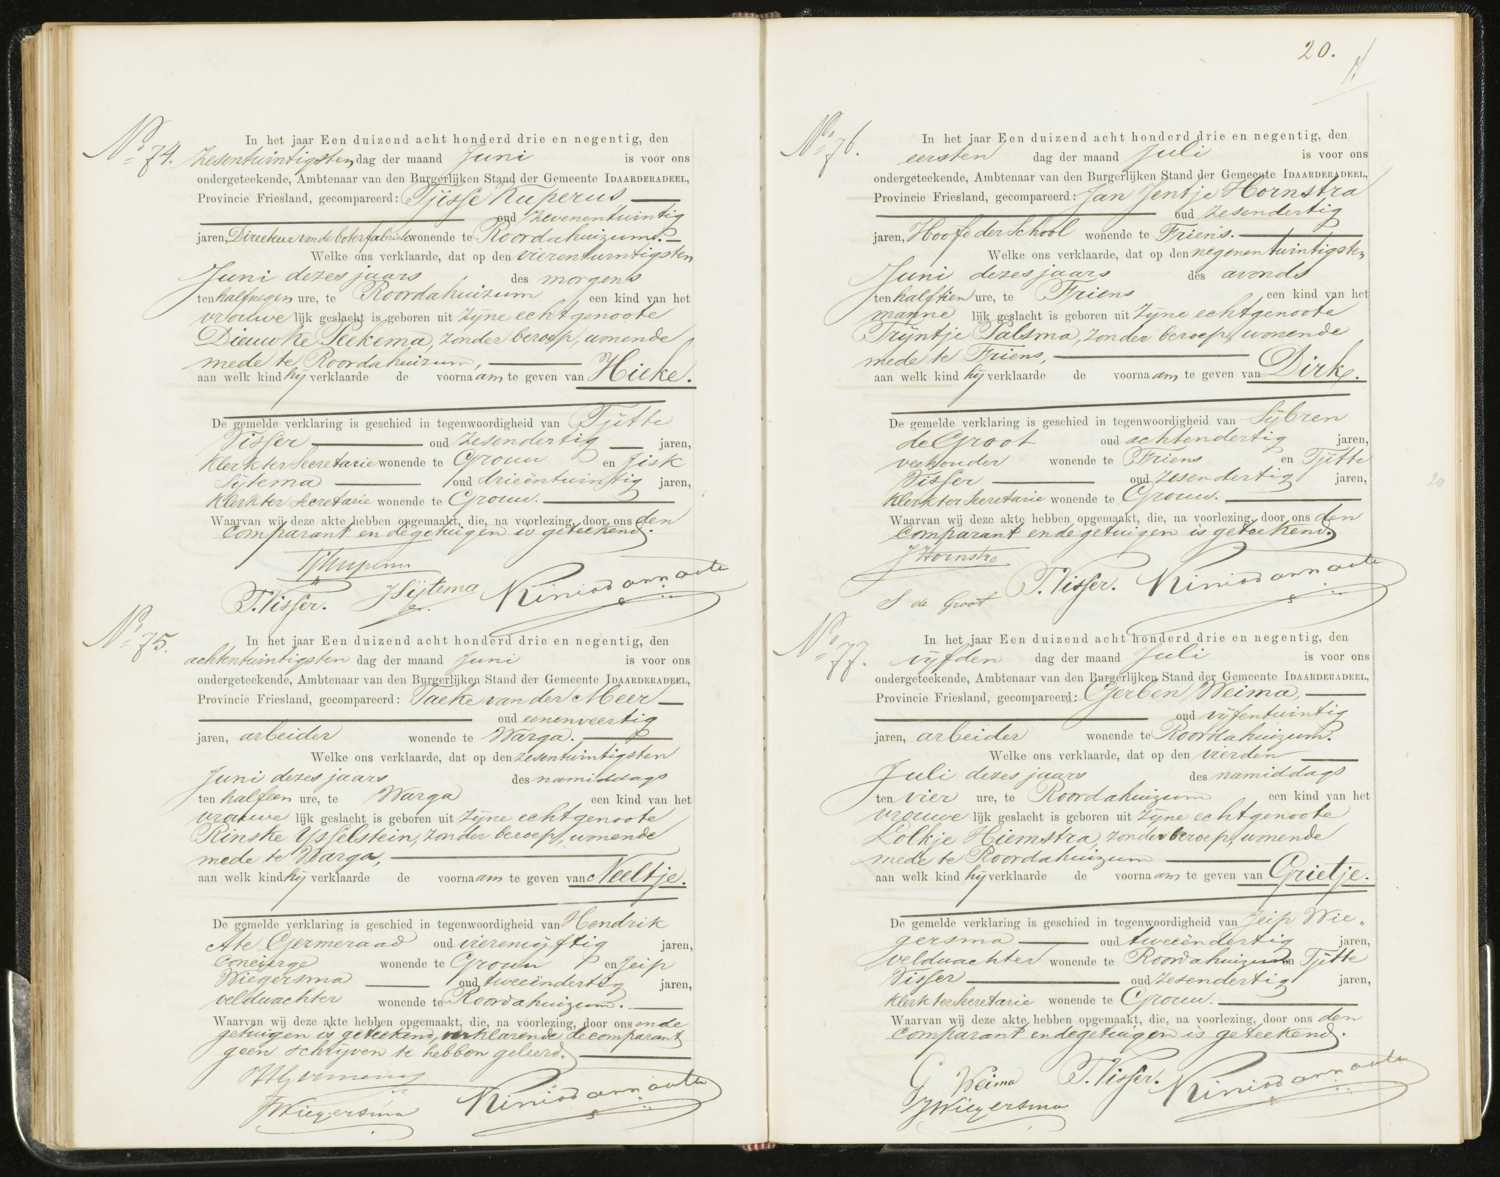 No. 74.
In het jaar Een duizend acht honderd drie en negentig, den
zesentwintigsten dag der maand Juni is voor ons
ondergeteekende, Ambtenaar van den Burgerlijken Stand der Gemeente IDAARDERADEEL,
Provincie Friesland, gecompareerd: Tjisse Kuperus,
oud zevenentwintig
jaren, Directeur van de boterfabriek wonende te Roordahuizum.
Welke ons verklaarde, dat op den vierentwintigsten
Juni dezes jaars des morgens
ten half negen ure, te Roordahuizum een kind van het
vrouwe lijk geslacht is geboren uit zijne echtgenoote
Dieuwke Peekema, zonder beroep, wonende
mede te Roordahuizum,
aan welk kind hij verklaarde de voornaam te geven van Hieke.
De gemelde verklaring is geschied in tegenwoordigheid van Tjitte
Visser oud zesendertig jaren,
klerk ter secretarie wonende te Grouw en Jisk
Sijtema oud drieëntwintig jaren,
klerk ter secretarie wonende te Grouw.
Waarvan wij deze akte hebben opgemaakt, die, na voorlezing, door ons den
comparant en de getuigen is geteekend.
T Kuperus
T. Visser. J Sijtema
No. 75.
In het jaar Een duizend acht honderd drie en negentig, den
achtentwintigsten dag der maand Juni is voor ons
ondergeteekende, Ambtenaar van den Burgerlijken Stand der Gemeente IDAARDERADEEL,
Provincie Friesland, gecompareerd: Taeke van der Meer
oud eenenveertig
jaren, arbeider wonende te Warga.
Welke ons verklaarde, dat op den zesentwintigsten
Juni dezes jaars des namiddags
ten half een ure, te Warga een kind van het
vrouwe lijk geslacht is geboren uit zijne echtgenoote
Rinske IJsselstein, zonder beroep, wonende
mede te Warga,
aan welk kind hij verklaarde de voornaam te geven van Neeltje.
De gemelde verklaring is geschied in tegenwoordigheid van Hendrik
Ate Germeraad oud vierenvijftig jaren,
concierge wonende te Grouw en Jeip
Wiegersma oud tweeëndertig jaren,
veldwachter wonende te Roordahuizum.
Waarvan wij deze akte hebben opgemaakt, die, na voorlezing, door ons en de
getuigen is geteekend, verklarende de comparant
geen schrijven te hebben geleerd.
J Wiegersma
20.
No. 76.
In het jaar Een duizend acht honderd drie en negentig, den
eersten dag der maand Juli is voor ons
ondergeteekende, Ambtenaar van den Burgerlijken Stand der Gemeente IDAARDERADEEL,
Provincie Friesland, gecompareerd: Jan Jentje Hornstra
oud zesendertig
jaren, Hoofd der School wonende te Friens.
Welke ons verklaarde, dat op den negenentwintigsten
Juni dezes jaars des avonds
ten half tien ure, te Friens een kind van het
manne lijk geslacht is geboren uit zijne echtgenoote
Trijntje Palsma, zonder beroep, wonende
mede te Friens,
aan welk kind hij verklaarde de voornaam te geven van Dirk.
De gemelde verklaring is geschied in tegenwoordigheid van Sijbren
de Groot oud achtendertig jaren,
veehouder wonende te Friens en Tjitte
Visser oud zesendertig jaren,
klerk ter secretarie wonende te Grouw.
Waarvan wij deze akte hebben opgemaakt, die, na voorlezing, door ons den
comparant en de getuigen is geteekend.
J Hornstra
S de Groot T. Visser.
20
No. 77.
In het jaar Een duizend acht honderd drie en negentig, den
vijfden dag der maand Juli is voor ons
ondergeteekende, Ambtenaar van den Burgerlijken Stand der Gemeente IDAARDERADEEL,
Provincie Friesland, gecompareerd: Gerben Weima,
oud vijfentwintig
jaren, arbeider wonende te Roordahuizum.
Welke ons verklaarde, dat op den vierden
Juli dezes jaars des namiddags
ten vier ure, te Roordahuizum een kind van het
vrouwe lijk geslacht is geboren uit zijne echtgenoote
Lolkje Hiemstra, zonder beroep, wonende
mede te Roordahuizum
aan welk kind hij verklaarde de voornaam te geven van Grietje.
De gemelde verklaring is geschied in tegenwoordigheid van Jeip Wie-
gersma oud tweeëndertig jaren,
veldwachter wonende te Roordahuizum en Tjitte
Visser oud zesendertig jaren,
klerk ter secretarie wonende te Grouw.
Waarvan wij deze akte hebben opgemaakt, die, na voorlezing, door ons den
comparant en de getuigen is geteekend.
G Weima T. Visser.
J Wiegersma